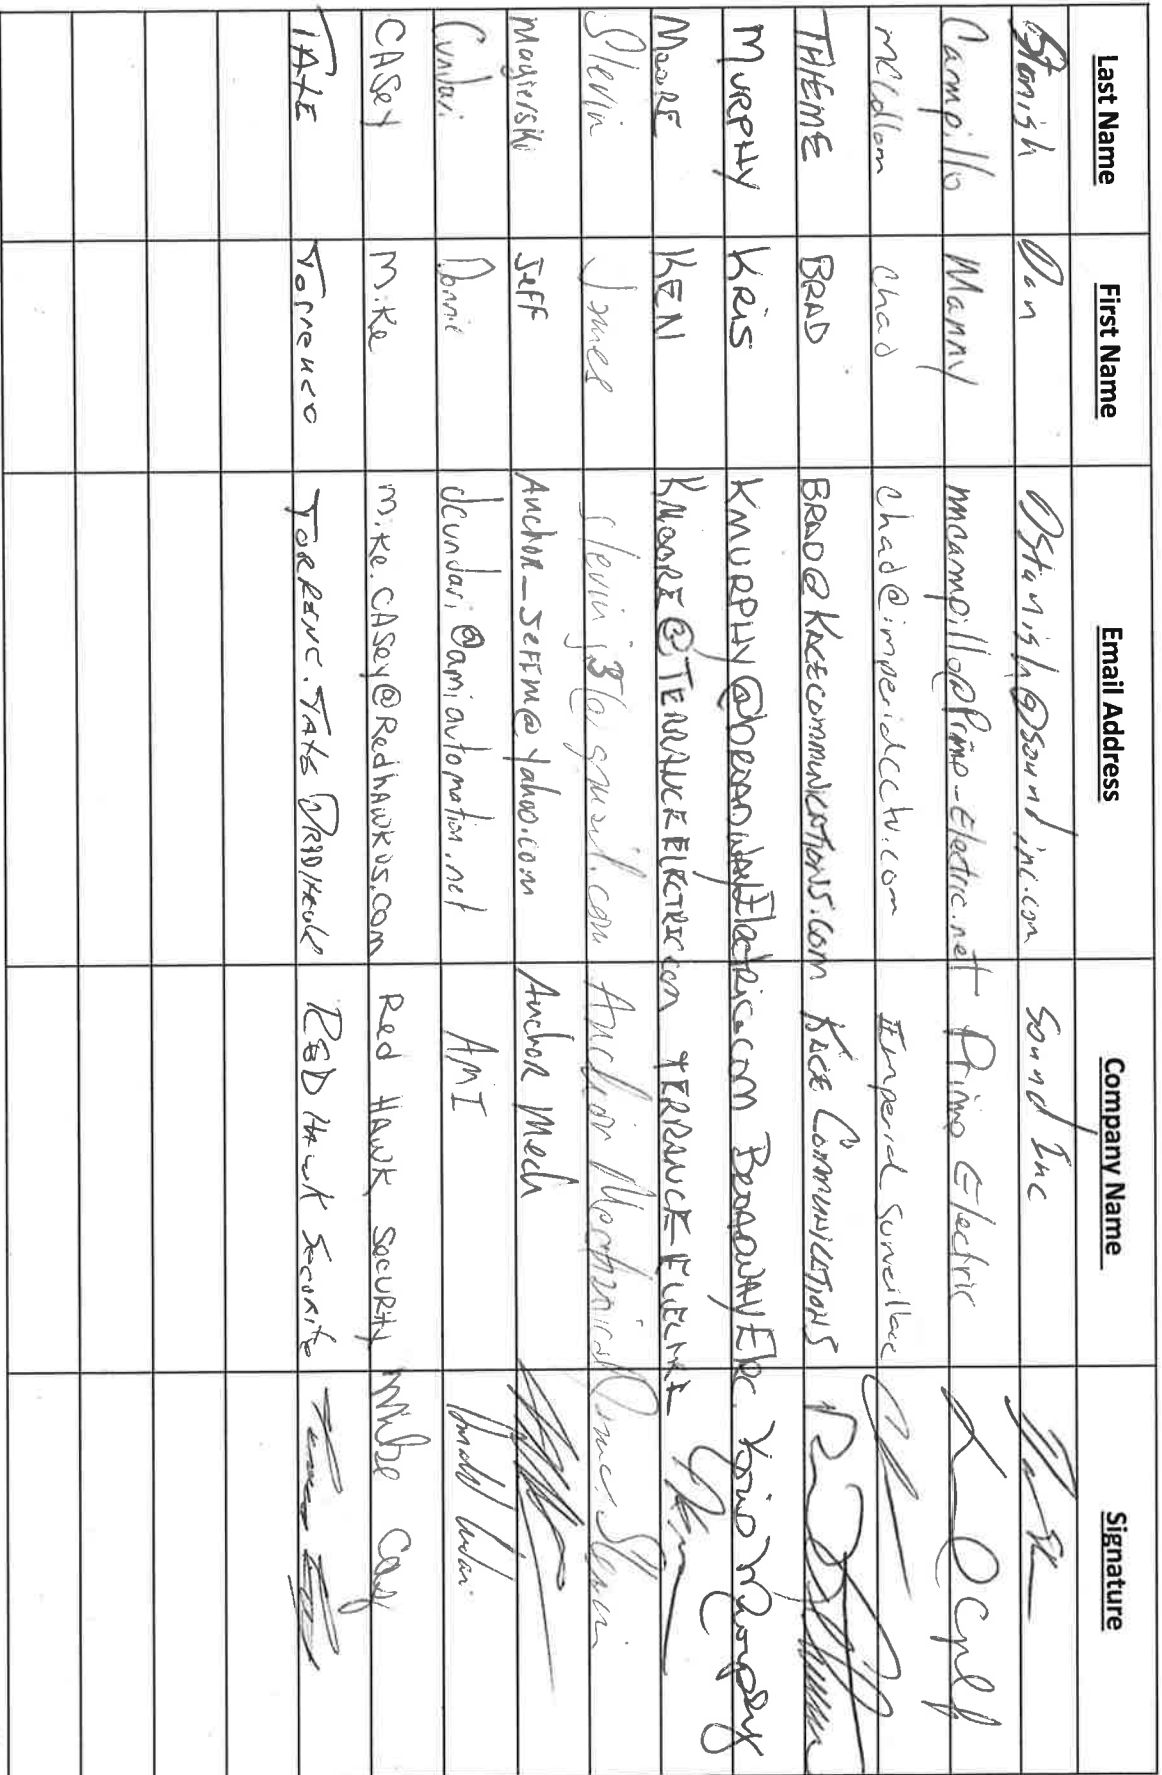 Last Name First Name Email Address Company Name Signature
Stanish Dan DStanish@soundinc.com Sound Inc
Campillo Manny mcampillo@Prime-Electric.net Prime Electric
McCollom Chad chad@imperialcctv.com Imperial Surveillance
THIEME BRAD BRAD@KACECOMMUNICATIONS.COM KACE COMMUNICATIONS
MURPHY KRiS KMURPHY@bROADWAYElectric.com BROADWAY Elec. Kris Murphy
MOORE KEN KMOORE@TERRANCEELECTRIC.com TERRANCE ELECTRIC
Slevin James slevinj3@gmail.com Anchor Mechanical James Slevin
Magierski JeFF Anchor_JeFFM@yahoo.com Anchor Mech
Cundari Donnie dcundari@amiautomation.net AMI Donald Cundari
CASey Mike Mike.CASey@RedhAwkUS.com Red HAwk Security Mike Casey
TATE Torrence TORRENC.TATE@REDHAWK RED HAWK Security